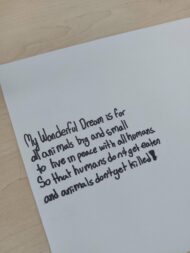 My Wonderful Dream is for
all animals big and small
to live in peace with all humans
So that humans don't get eaten
and animals don't get killed!